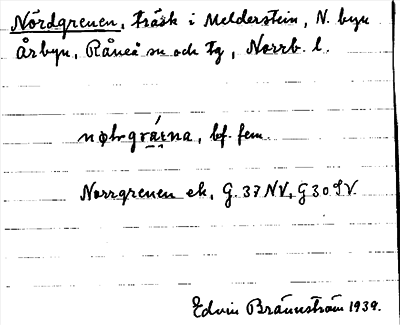 Nördgrenen, träsk i Melderstein, N. byn
Årbyn, Råneå sn och tg, Norrb. l.
nøḷrgrá̱i̱na, bf. fem.
Norrgrenen ek, G. 37 NV, G 30 SV.
Edvin Brännström 1939.